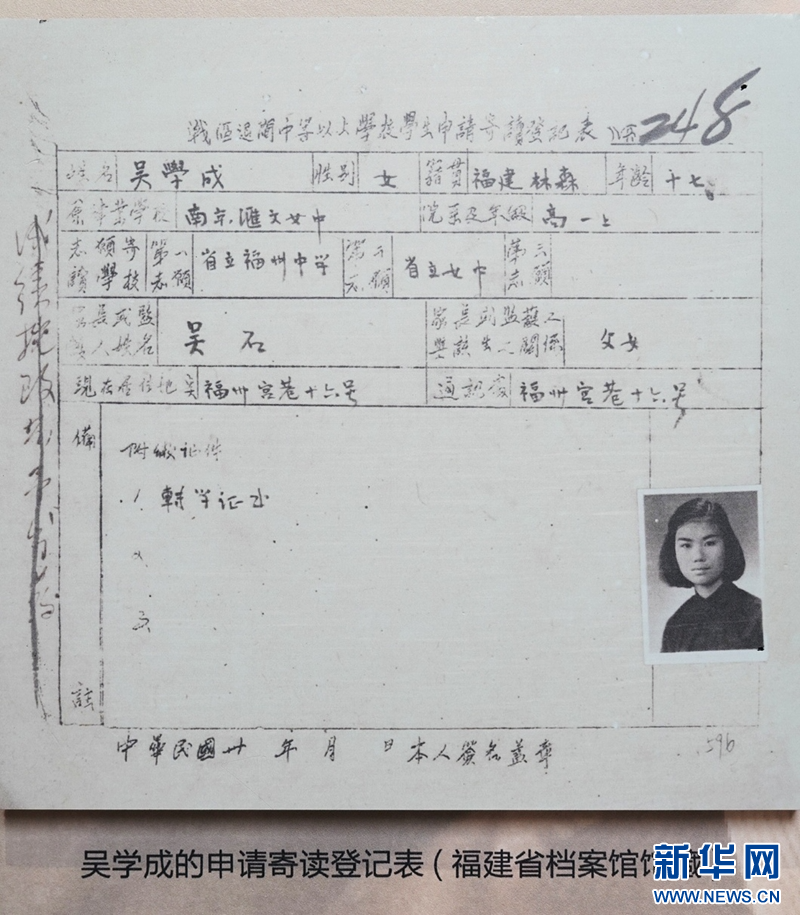 戰區退閩中學以上學校學生申請寄讀登記表 248
姓名 吳學成 性別 女 籍貫 福建林森 年齡 十七
原肄業學校 南京滙文女中 院系及年級 高一上
志願寄讀學校 第一志願 省立福州中学 第二志願 省立女中 第三志願
家長或監護人姓名 吴石 家長或監護人與該生之關係 父女
現在居住地 福州宫巷十六号 通訊處 福州宫巷十六号
備註
附繳证件
1 轉学证书
中華民國卅 年 月 日本人簽名蓋章
596
吴学成的申请寄读登记表（福建省档案馆馆藏
新华网
WWW.NEWS.CN